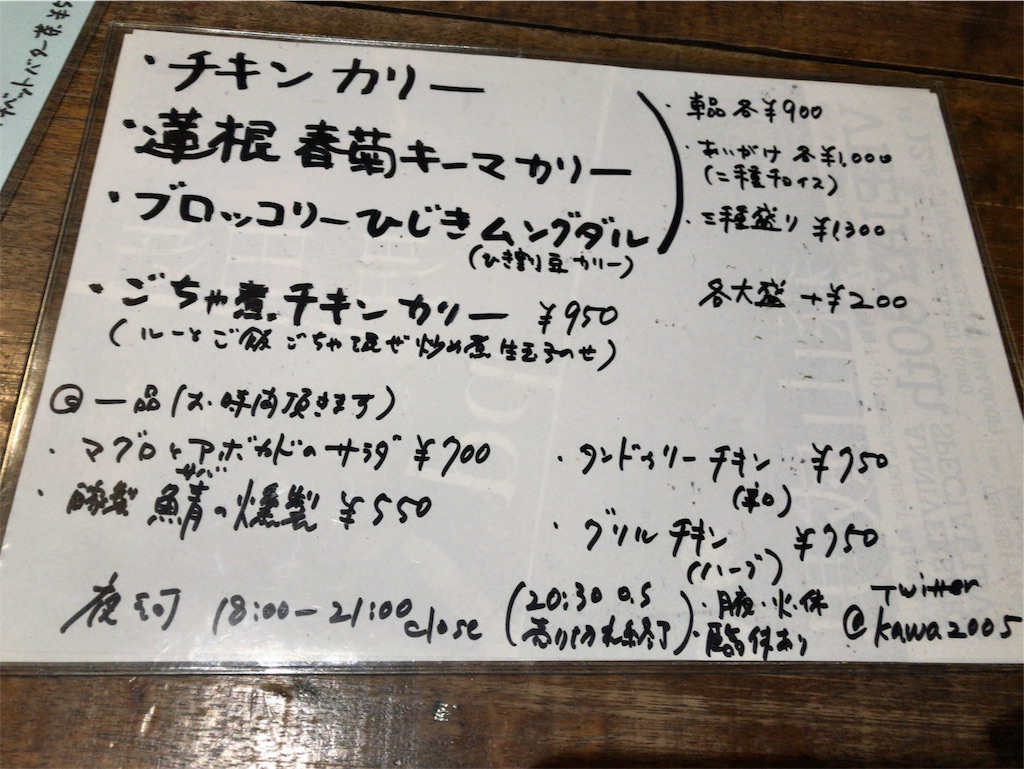 ・チキンカリー
・蓮根春菊キーマカリー
・ブロッコリーひじきムングダル
(ひき割り豆カリー)
・単品各¥900
・あいがけ 各¥1,000
(二種チョイス)
・三種盛り ¥1300
各大盛 +¥200
・ごちゃ煮チキンカリー ¥950
(ルーとご飯ごちゃ混ぜ炒め煮 生玉子のせ)
◎一品(お時間頂きます)
・マグロとアボカドのサラダ ¥700
・自家製 鯖の燻製 ¥550
サバ
・タンドゥリーチキン ¥750
(辛口)
・グリルチキン ¥750
(ハーブ)
夜河 18:00-21:00 close
(20:30 O.S
売り切れ終了)
・月夜・火・休
・臨時休あり
Twitter
@kawa2005